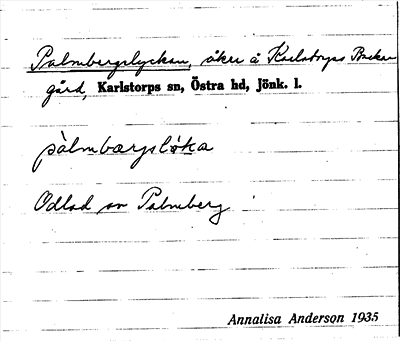 Palmbergslyckan, åker å Karlstorps Backe-
gård, Karlstorps sn, Östra hd, Jönk. l.
pàlmbærgsløka
Odlad av Palmberg
Annalisa Anderson 1935